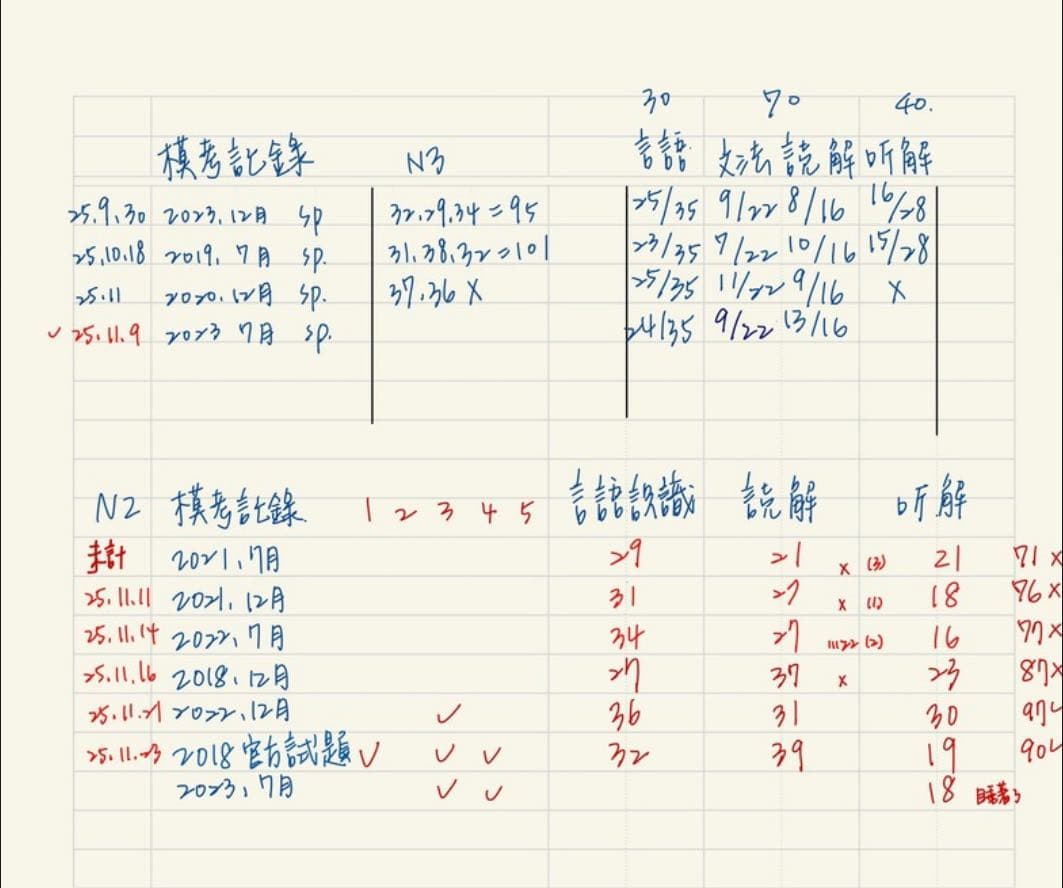 30 70 40.
模考記録 N3 言語 文法 読解 听解
25.9.30 2023.12月 sp 32.29.34=95 25/35 9/22 8/16 16/28
25.10.18 2019.7月 sp. 31.38.32=101 23/35 7/22 10/16 15/28
25.11 2020.12月 sp. 37.36 X 25/35 11/22 9/16 X
✓25.11.9 2023 7月 sp. 24/35 9/22 13/16
N2 模考記録 1 2 3 4 5 言語識 読解 听解
未計 2021.7月 29 21 x (3) 21 71 x
25.11.11 2021.12月 31 27 x (1) 18 76 x
25.11.14 2022.7月 34 27 11122 (2) 16 77 x
25.11.16 2018.12月 27 37 x 23 87 x
25.11.21 2022.12月 ✓ 36 31 30 97 ✓
25.11.23 2018官方試題 ✓ ✓ ✓ 32 39 19 90 ✓
2023.7月 ✓ ✓ 18 睡著了